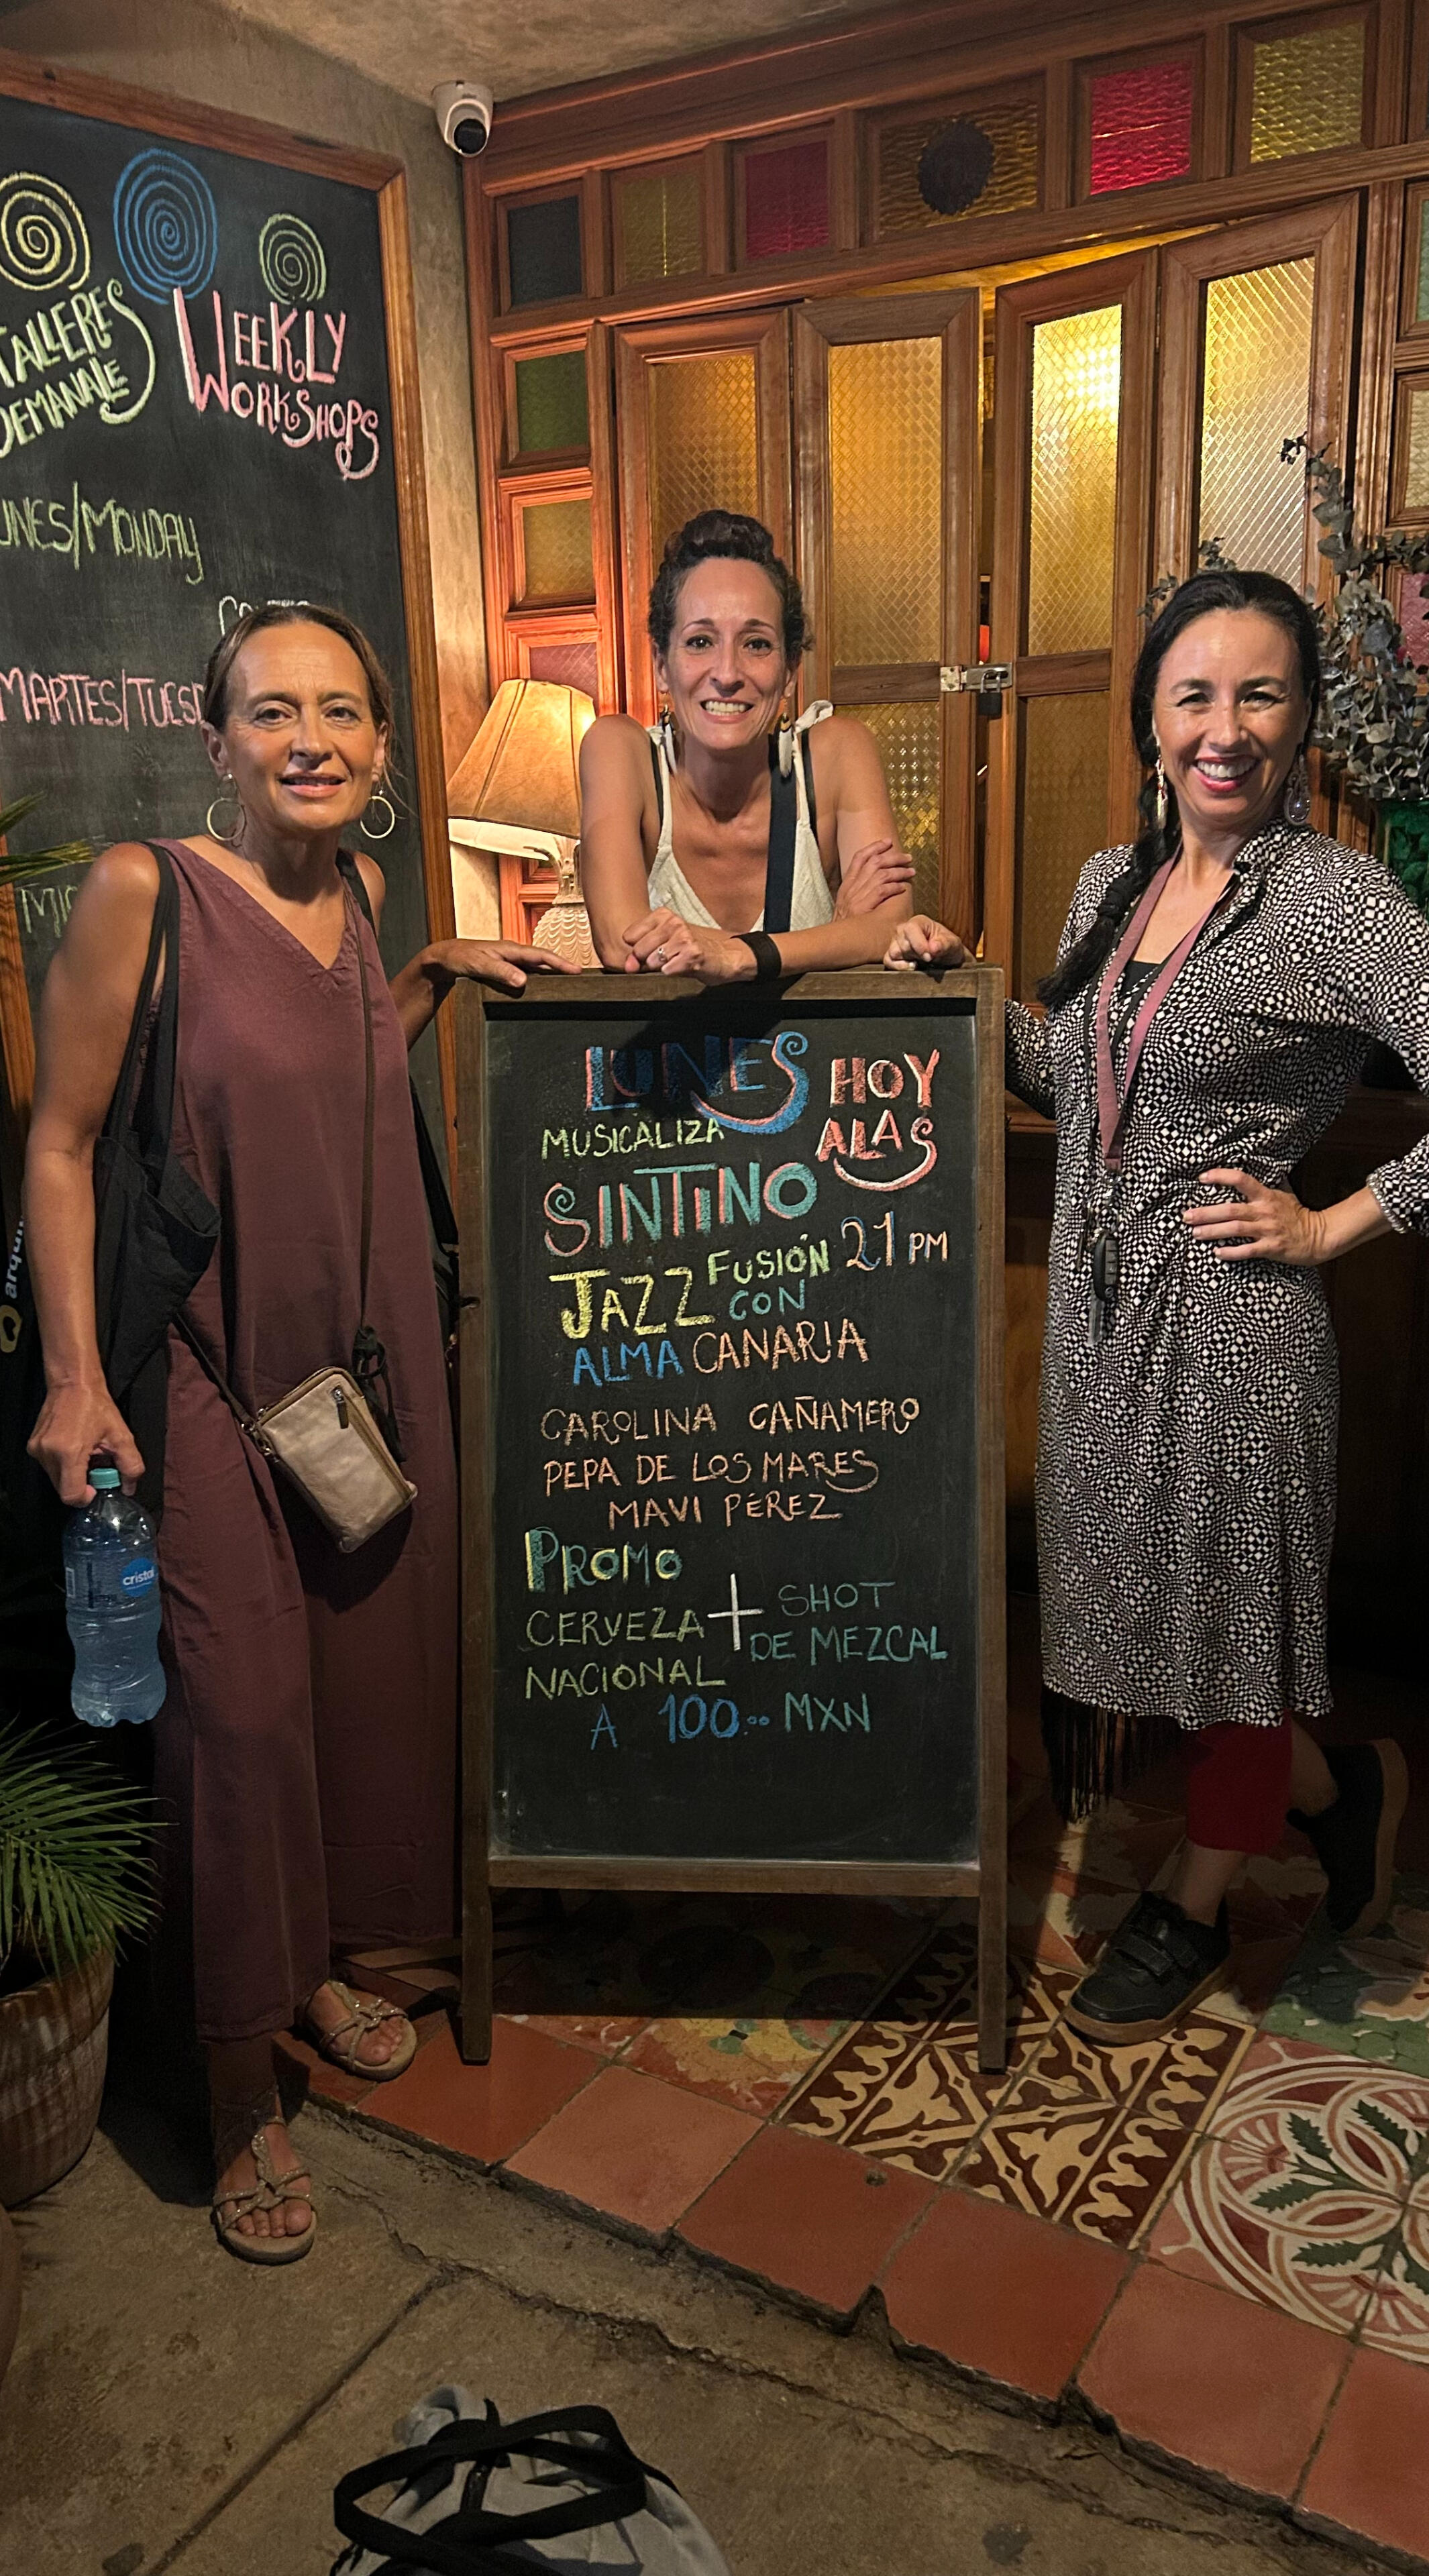 TALLERES
SEMANALE
WEEKLY
WORKSHOPS
LUNES/MONDAY
MARTES/TUESD
LUNES HOY
MUSICALIZA A LAS
SINTINO
JAZZ FUSIÓN 21 PM
CON
ALMA CANARIA
CAROLINA CAÑAMERO
PEPA DE LOS MARES
MAVI PÉREZ
PROMO
CERVEZA + SHOT
NACIONAL DE MEZCAL
A 100.°° MXN
cristal
arqui